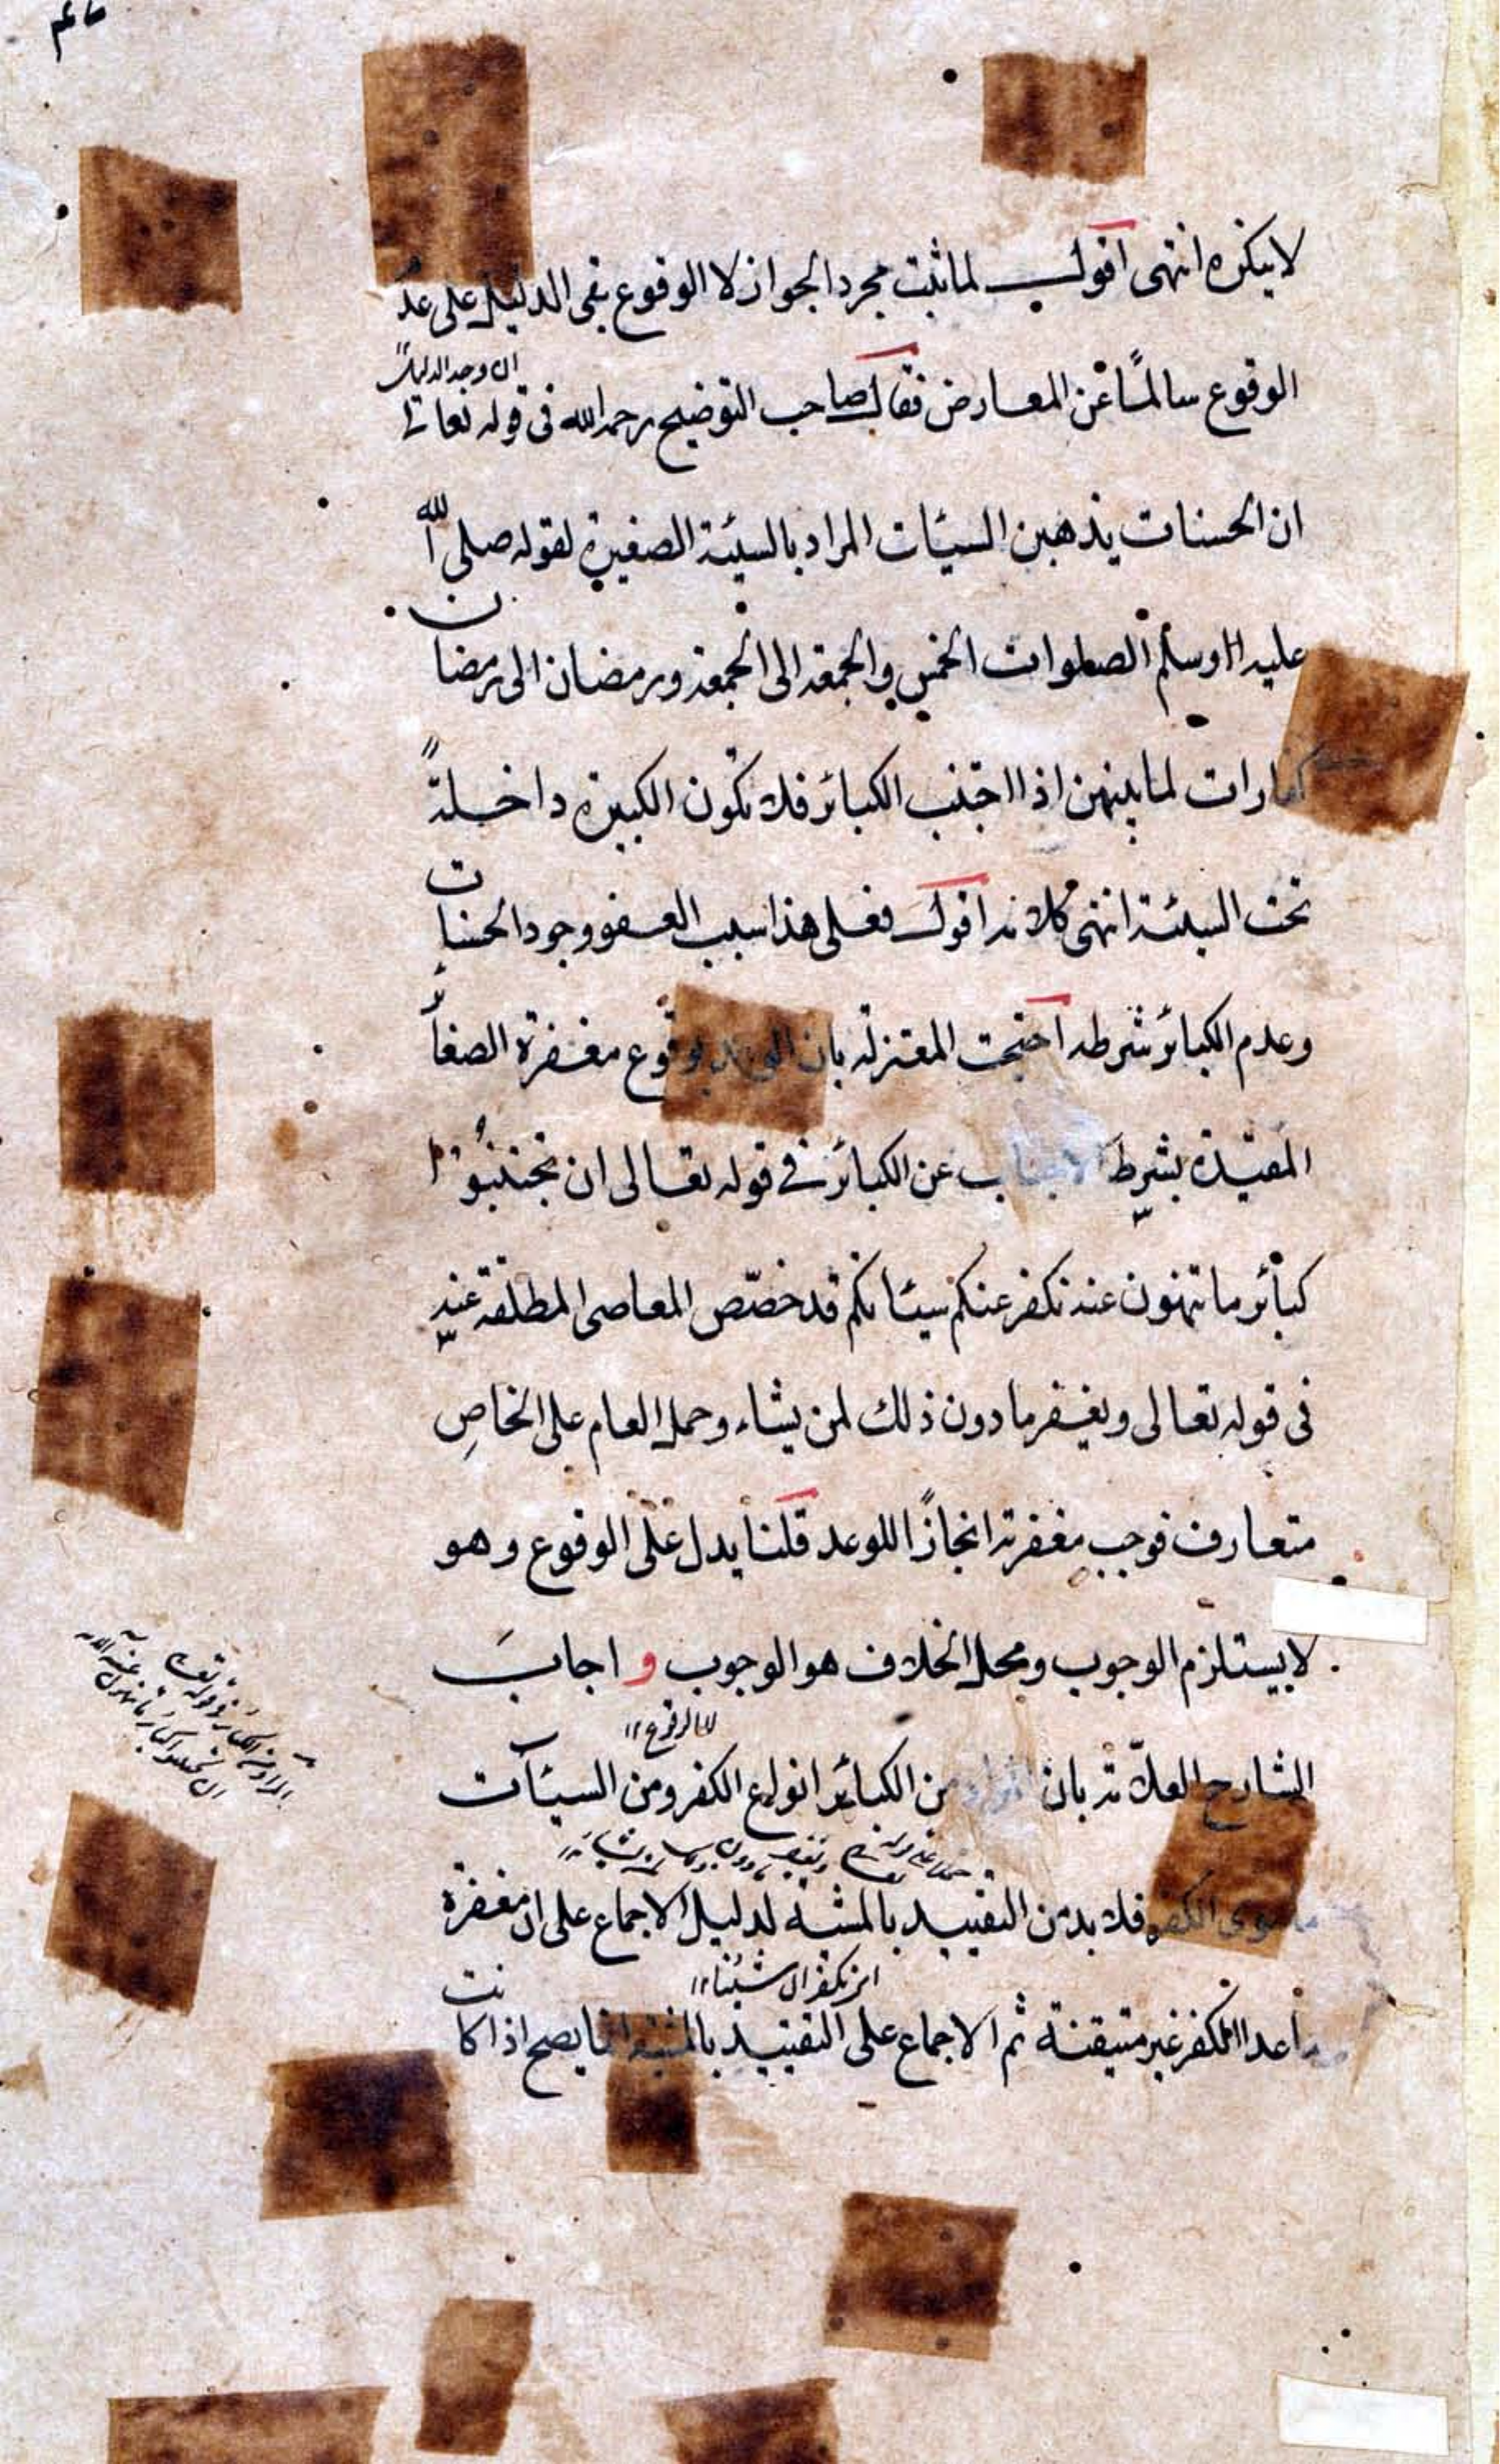 لاينكره انتهى اقول لما ثبت مجرد الجواز لا الوقوع بقى الدليل على عدم
ان وجد الدليل
الوقوع سالمًا عن المعارض فقال صاحب التوضيح رحمه الله فى قوله تعالى
ان الحسنات يذهبن السيئات المراد بالسيئة الصغيرة لقوله صلى الله
عليه وسلم الصلوات الخمس والجمعة الى الجمعة ورمضان الى رمضان
كفارات لما بينهن اذا اجتنب الكبائر فلا تكون الكبيرة داخلةً
تحت السيئة انتهى كلامه اقول فعلى هذا سبب العفو وجود الحسنات
وعدم الكبائر شرطه احتجت المعتزلة بان بوقوع مغفرة الصغائر
المقيدة بشرط الاجتناب عن الكبائر فى قوله تعالى ان تجتنبوا
كبائر ما تنهون عنه نكفر عنكم سيئاتكم قد خصّص المعاصى المطلقة عنه
فى قوله تعالى ويغفر ما دون ذلك لمن يشاء وحمل العام على الخاصِ
متعارف فوجب مغفرته انجازًا للوعد قلنا يدل على الوقوع وهو
لا يستلزم الوجوب ومحل الخلاف هو الوجوب و اجابَ
الشارح العلامة بان المراد من الكبائر انواع الكفر ومن السيئات
ما سوى الكفر فلا بد من التقييد بالمشية لدليل الاجماع على ان مغفرة
ما عدا الكفر غير متيقنة ثم الاجماع على التقييد بالمشية انما يصح اذا كانت